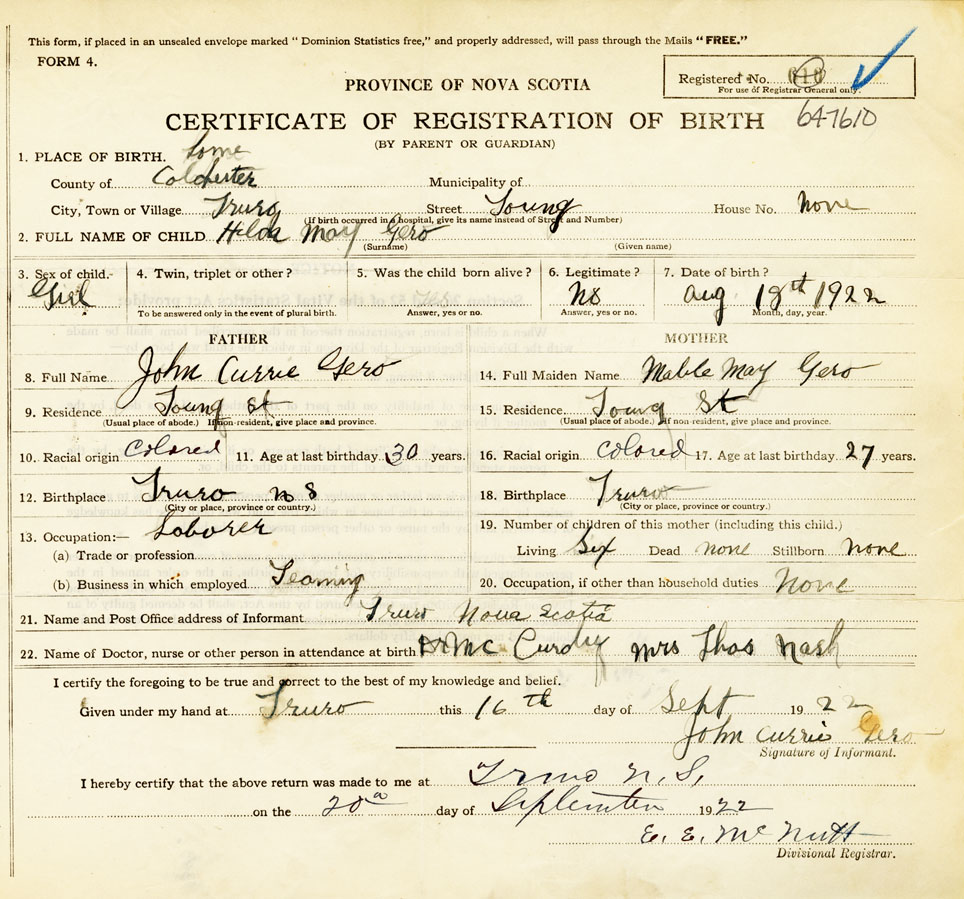 This form, if placed in an unsealed envelope marked "Dominion Statistics free," and properly addressed, will pass through the Mails "FREE."
FORM 4.
Registered No.
For use of Registrar General only.
PROVINCE OF NOVA SCOTIA
647610
CERTIFICATE OF REGISTRATION OF BIRTH
(BY PARENT OR GUARDIAN)
1. PLACE OF BIRTH.
County of Colchester Municipality of
City, Town or Village Truro Street Young House No. none
(If birth occurred in a hospital, give its name instead of Street and Number)
2. FULL NAME OF CHILD Hilda May Gero
(Surname) (Given name)
3. Sex of child. 4. Twin, triplet or other? 5. Was the child born alive? 6. Legitimate? 7. Date of birth?
Girl Aug 18th 1922
To be answered only in the event of plural birth. Answer, yes or no. Answer, yes or no. Month, day, year.
FATHER MOTHER
8. Full Name John Currie Gero 14. Full Maiden Name Mable May Gero
9. Residence Young St 15. Residence. Young St
(Usual place of abode.) If non-resident, give place and province. (Usual place of abode.) If non-resident, give place and province.
10. Racial origin Colored 11. Age at last birthday 30 years. 16. Racial origin Colored 17. Age at last birthday 27 years.
12. Birthplace Truro n S 18. Birthplace Truro
(City or place, province or country.) (City or place, province or country.)
13. Occupation:— Laborer 19. Number of children of this mother (including this child.)
(a) Trade or profession Living Six Dead none Stillborn none
(b) Business in which employed Teaming 20. Occupation, if other than household duties None
21. Name and Post Office address of Informant Truro Nova Scotia
22. Name of Doctor, nurse or other person in attendance at birth Dr Mc Curdy Mrs Thos Nash
I certify the foregoing to be true and correct to the best of my knowledge and belief.
Given under my hand at Truro this 16th day of Sept 1922
John Currie Gero
Signature of Informant.
I hereby certify that the above return was made to me at Truro N. S.
on the 20 day of September 1922
E. E. McNutt
Divisional Registrar.